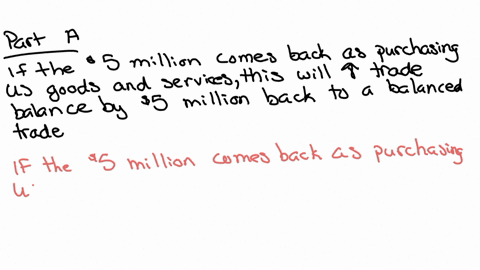 Part A
If the $5 million comes back as purchasing
us goods and services, this will ↑ trade
balance by $5 million back to a balanced
trade
IF the $5 million comes back as purchasing